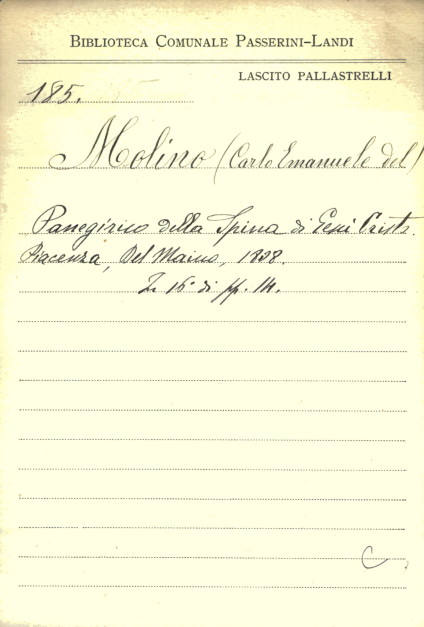 BIBLIOTECA COMUNALE PASSERINI-LANDI
LASCITO PALLASTRELLI
185.
Molino (Carlo Emanuele del)
Panegirico della Spina di Gesù Cristo.
Piacenza, Del Maino, 1808.
In 16° di pp. 14.
C